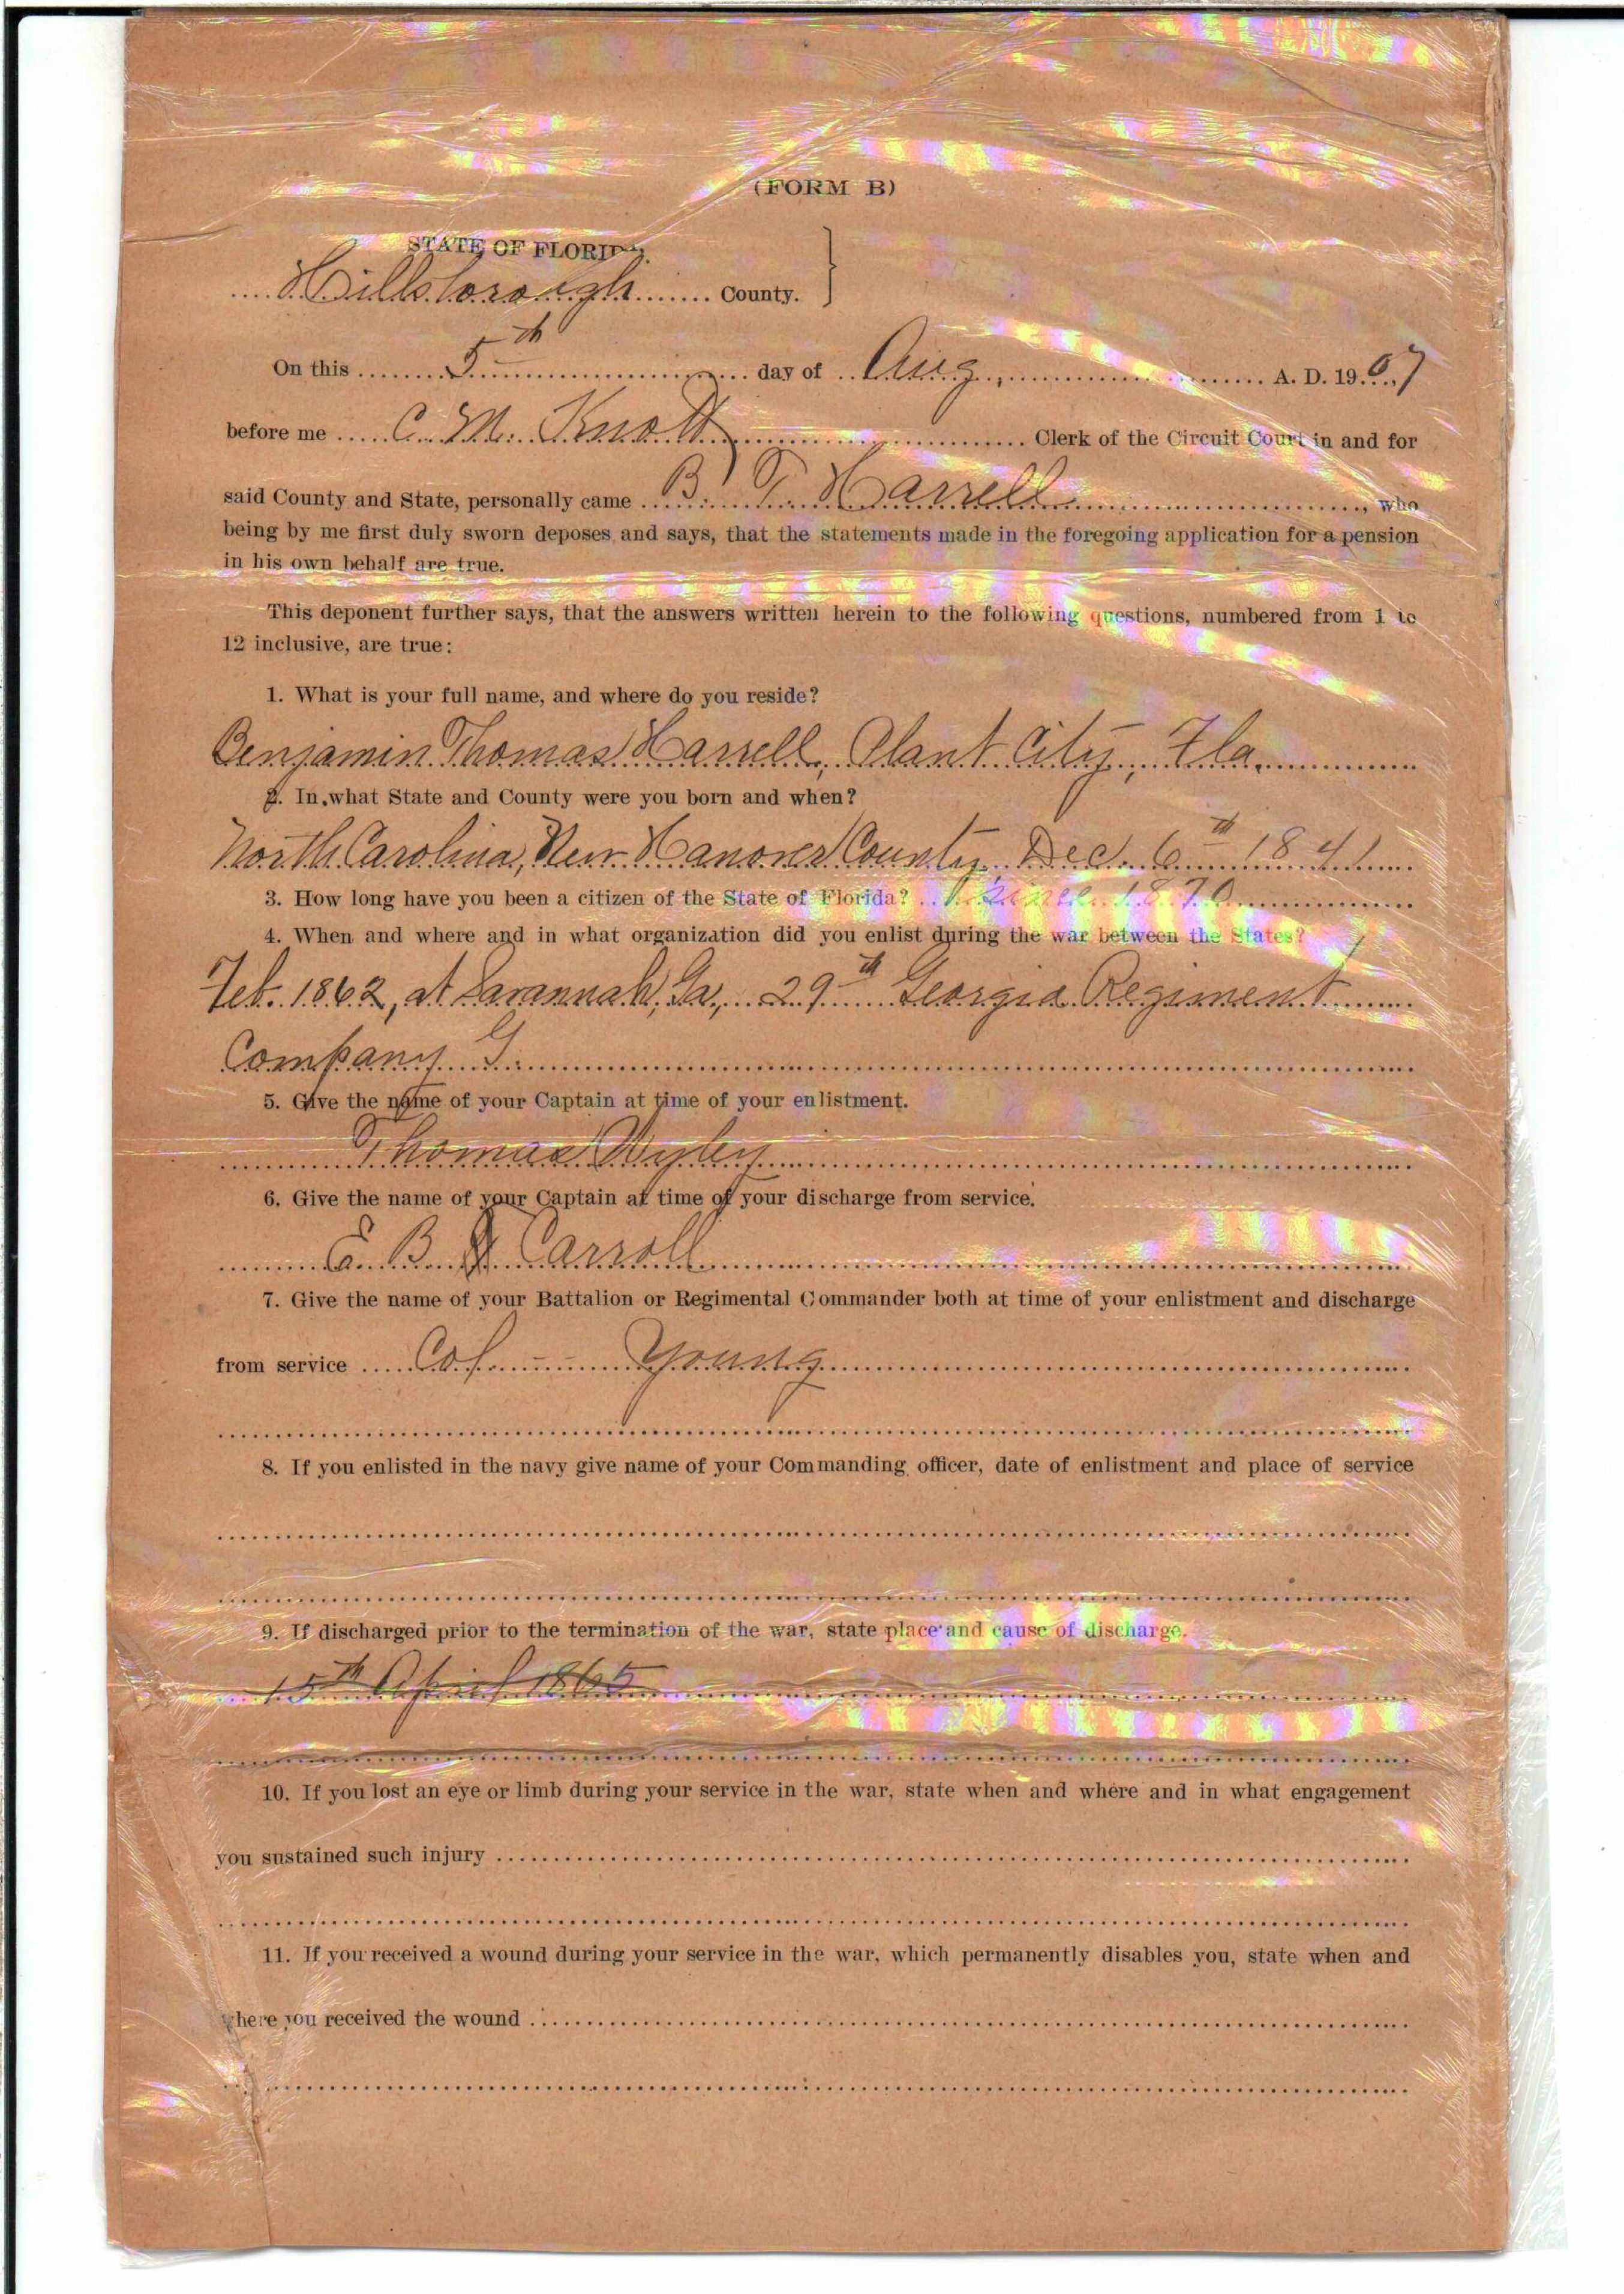 (FORM B)
STATE OF FLORIDA.
Hillsborough County.
On this 5th day of Aug, A. D. 1907
before me C. M. Knott Clerk of the Circuit Court in and for
said County and State, personally came B. T. Harrell, who
being by me first duly sworn deposes and says, that the statements made in the foregoing application for a pension
in his own behalf are true.
This deponent further says, that the answers written herein to the following questions, numbered from 1 to
12 inclusive, are true:
1. What is your full name, and where do you reside?
Benjamin Thomas Harrell, Plant City, Fla.
2. In what State and County were you born and when?
North Carolina, New Hanover County, Dec. 6th 1841
3. How long have you been a citizen of the State of Florida? since 1870
4. When and where and in what organization did you enlist during the war between the States?
Feb. 1862, at Savannah, Ga, 29th Georgia Regiment
Company G.
5. Give the name of your Captain at time of your enlistment.
Thomas Wyley
6. Give the name of your Captain at time of your discharge from service.
E. B. Carroll
7. Give the name of your Battalion or Regimental Commander both at time of your enlistment and discharge
from service Col. Young
8. If you enlisted in the navy give name of your Commanding officer, date of enlistment and place of service
9. If discharged prior to the termination of the war, state place and cause of discharge.
15th April 1865
10. If you lost an eye or limb during your service in the war, state when and where and in what engagement
you sustained such injury
11. If you received a wound during your service in the war, which permanently disables you, state when and
where you received the wound